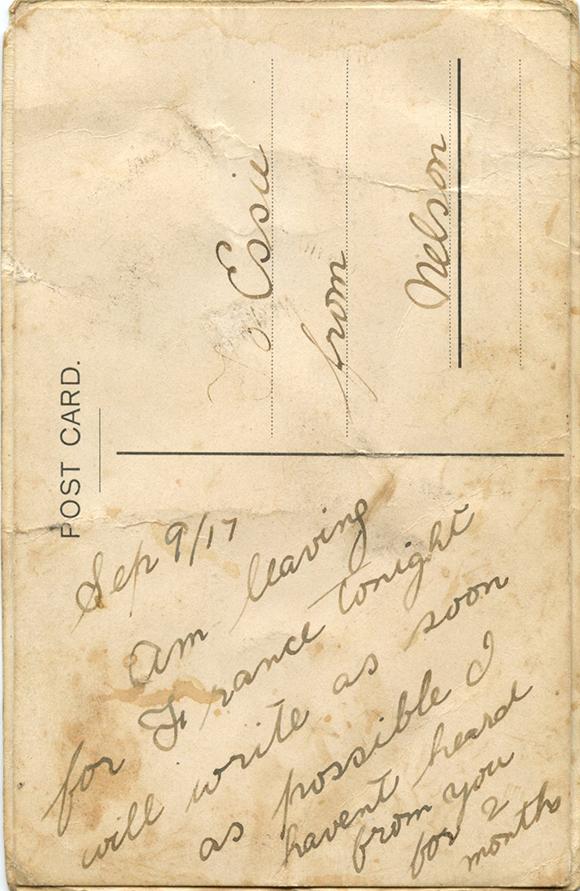 POST CARD.
Sep 9/17
Am leaving
for France tonight
will write as soon
as possible I
havent heard
from you
for 2
months
To Essie
from
Nelson